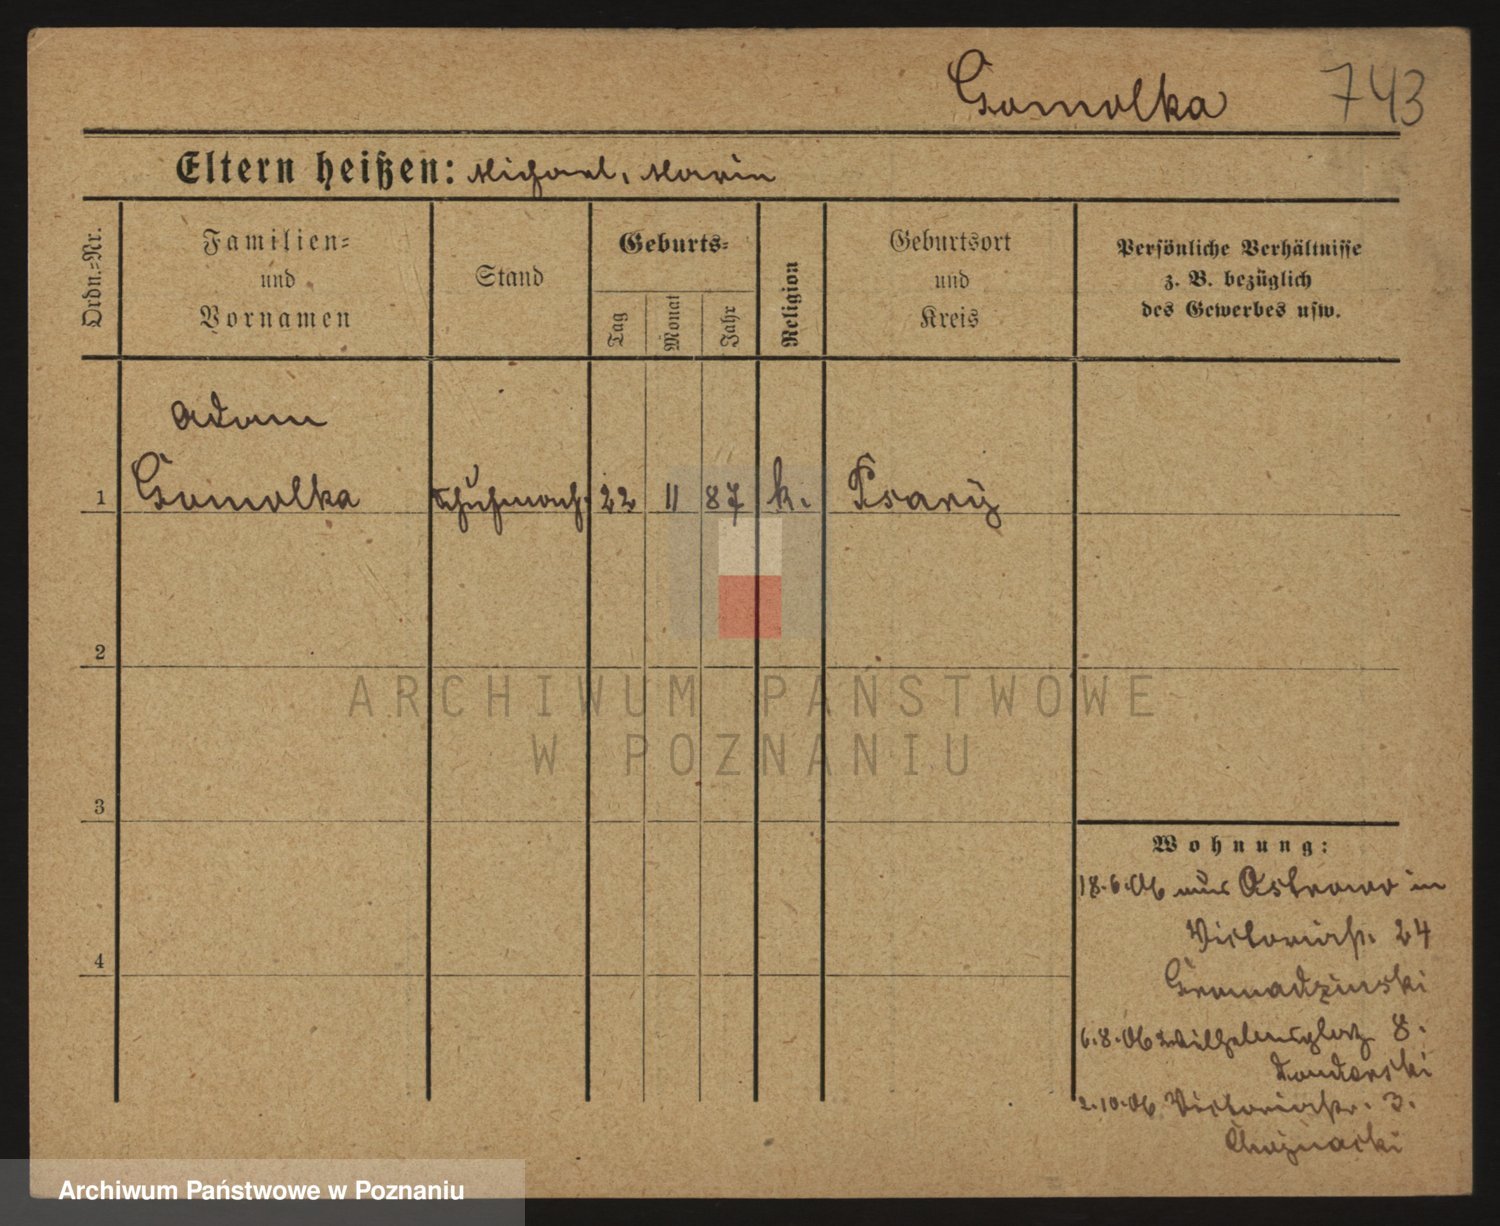 Gomolka 743
Eltern heißen: Michael, Marie
Ordn.-Nr.
Familien-
und
Vornamen
Stand
Geburts-
Tag
Monat
Jahr
Religion
Geburtsort
und
Kreis
Persönliche Verhältnisse
z. B. bezüglich
des Gewerbes usw.
Adam
1 Gomolka Schuhmach. 22 11 87 k. Psary
2
3
4
Wohnung:
18.6.06 aus Ostrowo in
Victoriastr. 24
Gromadzinski
6.8.06 Wilhelmsplatz 8.
2.10.06 Victoriastr. 3.
Chojnacki
ARCHIWUM PAŃSTWOWE
W POZNANIU
Archiwum Państwowe w Poznaniu